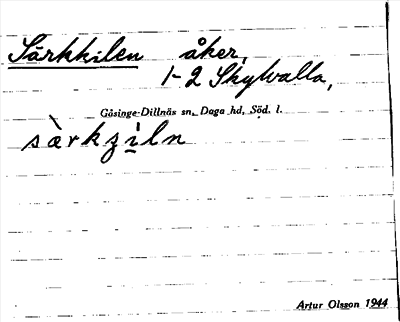 Särkkilen åker,
1-2 Skylvalla,
Gåsinge-Dillnäs sn, Daga hd, Söd. l.
sàrkzịln
Artur Olsson 1944